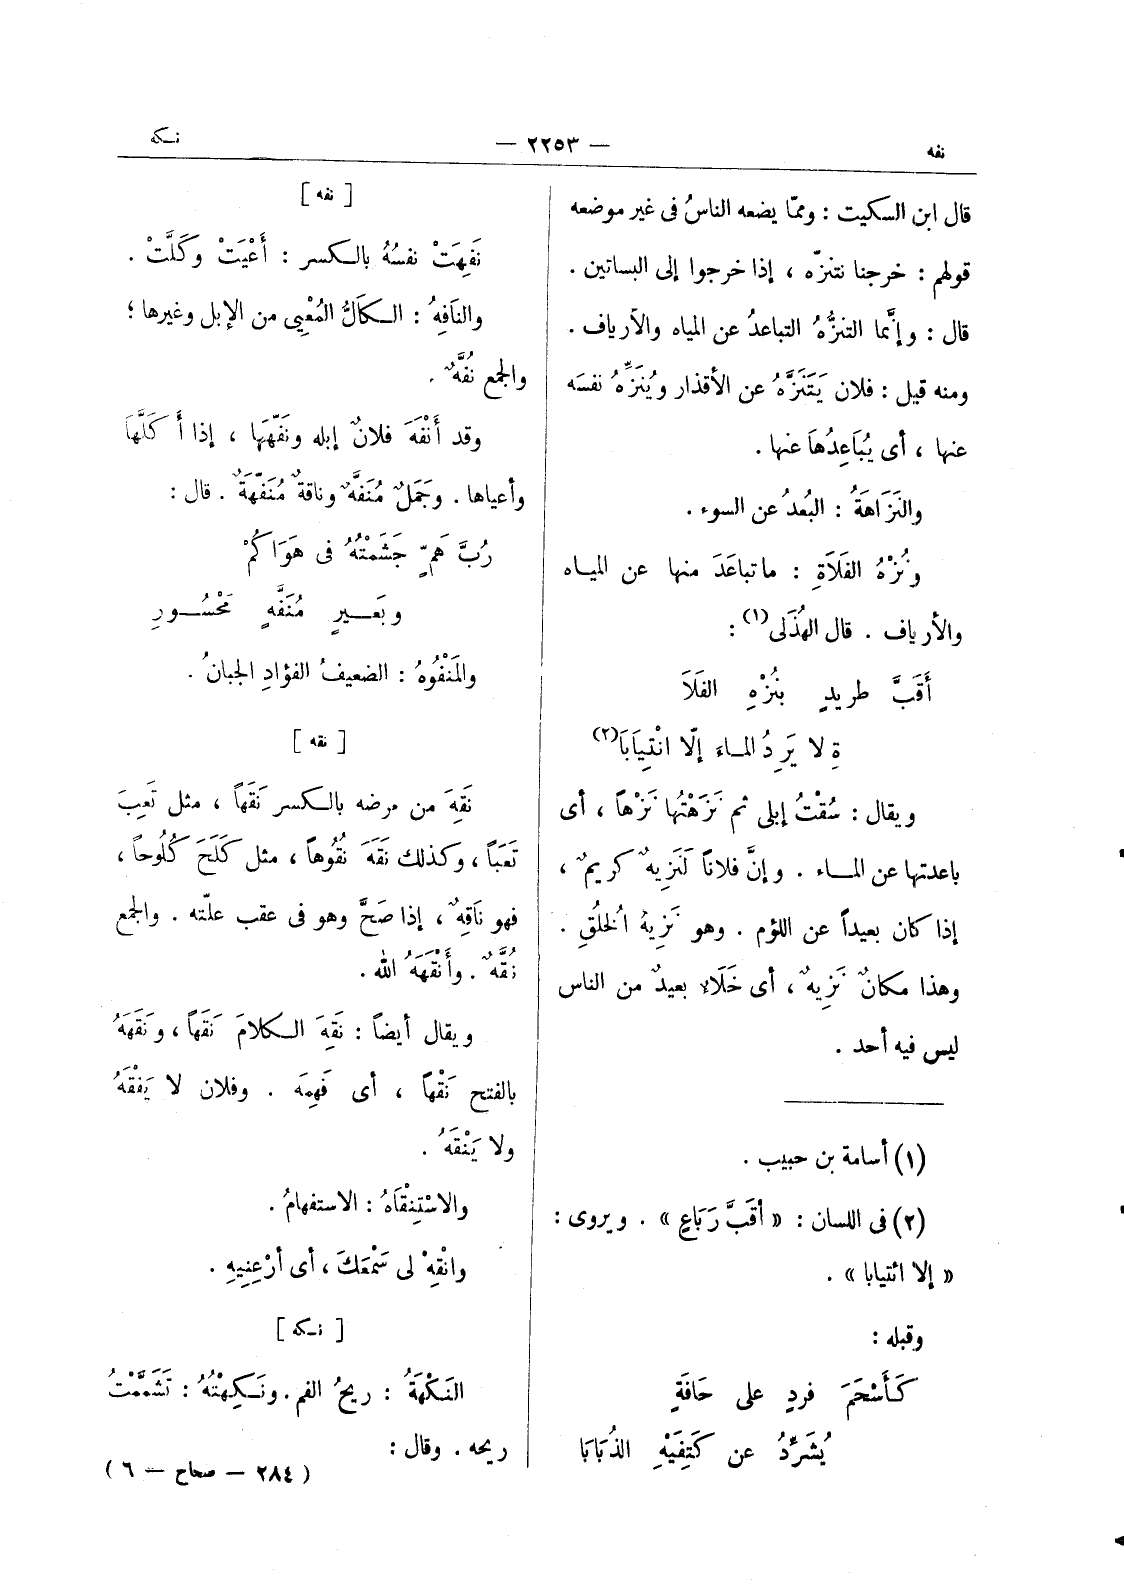 نفه
— ٢٢٥٣ —
نـكه
قال ابن السكيت : وممّا يضعه الناسُ فى غير موضعه
قولهم : خرجنا نتنزّه ، إذا خرجوا إلى البساتين .
قال : وإنَّما التنزُّهُ التباعدُ عن المياه والأرياف .
ومنه قيل : فلان يَتَنَزَّهُ عن الأقذار ويُنَزِّهُ نفسَه
عنها ، أى يُبَاعِدُهَا عنها .
والنَزَاهَةُ : البُعدُ عن السوء .
ونُزْهُ الفَلَاَةِ : ماتباعَدَ منها عن الميـاه
والأرياف . قال الهُذَلى(١) :
أَقَبَّ طريدٍ بنُزْهِ الفَلَاَ
ةِ لا يَرِدُ المـاءَ إلّا انْتِيَابَا(٢)
ويقال : سُقْتُ إبلى ثم نَزَهْتُها نَزْهاً ، أى
باعدتها عن المـــاء . وإنَّ فلاناً لَنَزِيهٌ كريمٌ ،
إذا كان بعيداً عن اللؤم . وهو نَزِيهُ الخلُقِ .
وهذا مكانٌ نَزِيهٌ ، أى خَلَاءٌ بعيدٌ من الناس
ليس فيه أحد .
(١) أسامة بن حبيب .
(٢) فى اللسان : « أقبَّ رَبَاعٍ » . ويروى :
« إلا ائتيابا » .
وقبله :
كَأَسْحَمَ فردٍ على حَافَةٍ
يُشَرِّدُ عن كَتِفَيْهِ الذُبَابَا
[ نفه ]
نَفِهَتْ نفسُهُ بالـكسر : أَعْيَتْ وَكَلَّتْ .
والنَافِهُ : الـكَالُّ المُعْيِى من الإبل وغيرها ؛
والجمع نُفَّهٌ .
وقد أَنْفَهَ فلانٌ إبله ونَفَّهَها ، إذا أَكَلَّهَا
وأعياها . وجَمَلٌ مُنَفَّهٌ وناقةٌ مُنَفَّهَةٌ . قال :
رُبَّ هَمٍّ جَشَمْتُهُ فى هَوَاكُمْ
وبَعـــيرٍ مُنَفَّهٍ مَحْسُــورِ
والمَنْفُوهُ : الضعيفُ الفؤادِ الجبانُ .
[ نقه ]
نَقِهَ من مرضه بالـكسر نَقَهاً ، مثل تَعِبَ
تَعَباً ، وكذلك نَقَهَ نُقُوهاً ، مثل كَلَحَ كُلُوحاً ،
فهو نَاقِهٌ ، إذا صَحَّ وهو فى عقب علّته . والجمع
نُقَّهٌ . وأَنْقَهَهُ الله .
ويقال أيضاً : نَقِهَ الـكلامَ نَقَهاً ، ونَقَهَهُ
بالفتح نَقْهاً ، أى فَهِمَه . وفلان لا يَفْقَهُ
ولا يَنْقَهُ .
والاسْتِنْقَاهُ : الاستفهامُ .
وانْقِهْ لى سَمْعَكَ ، أى أرْعِنِيهِ .
[ نـكه ]
النَكْهَةُ : ريحُ الفم . ونَـكِهْتُهُ : تَشَمَّمْتُ
ريحه . وقال :
( ٢٨٤ — صحاح — ٦ )